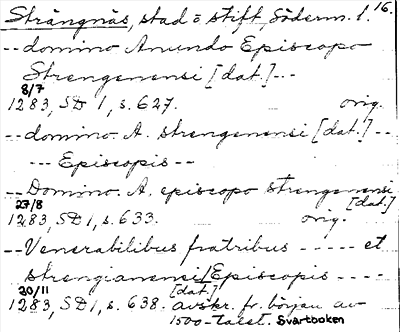 Strängnäs, stad o stift, Söderm. l. 16.
-- domino Anundo Episcopo
Strengenensi [dat.] --
8/7
1283, SD 1, s. 627. orig.
-- domino A. strengenensi [dat.] --
--- Episcopis --
-- Domino A. episcopo strengenensi
[dat.]
27/8
1283, SD 1, s. 633. orig.
-- Venerabilibus fratribus ----- et
strengianensi / Episcopis ----
[dat.]
20/11
1283, SD 1, s. 638. avskr. fr. början av
1500-talet. Svartboken